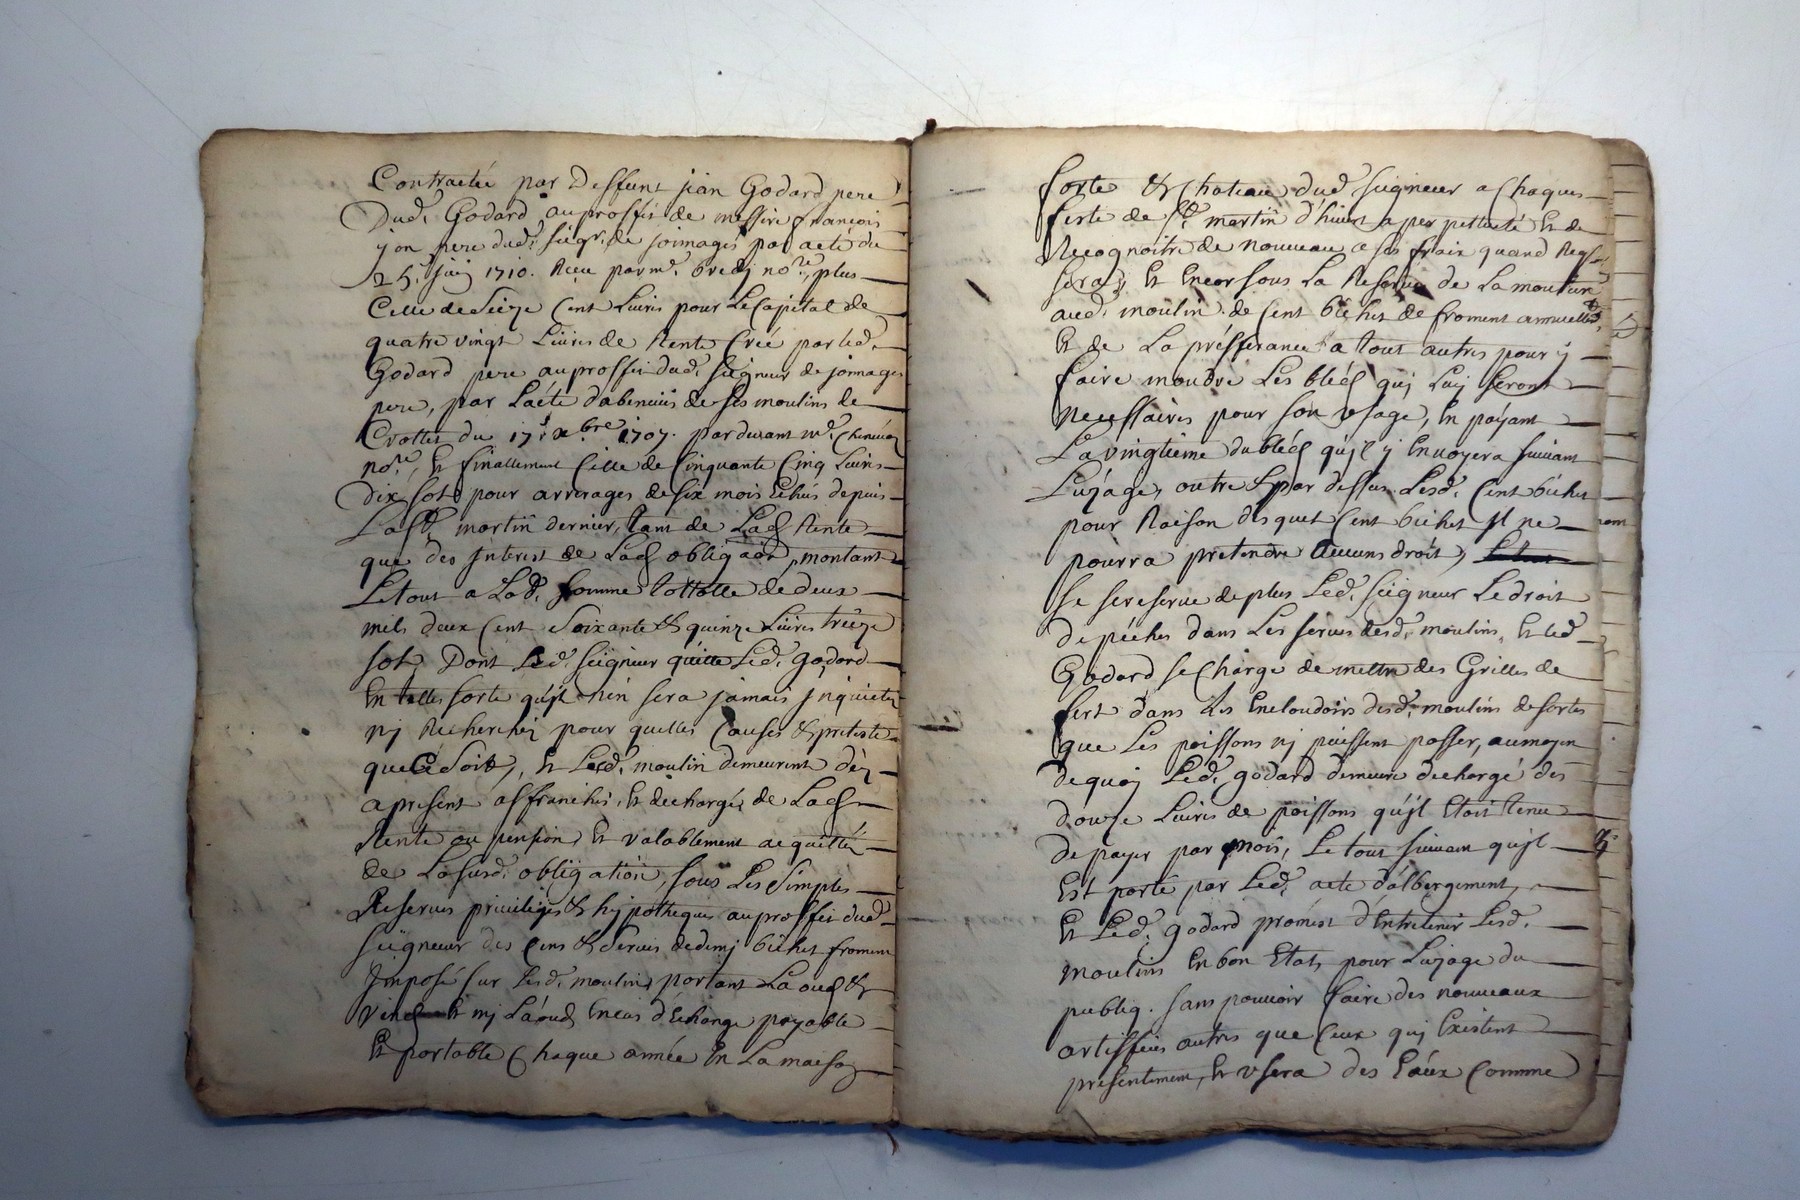 Contractée par Deffunt jean Godard pere
Dud. Godard au proffit de messire françois
yon pere dud. seigr. de jonnages par acte du
25e. juin 1710. Receu par me. bredy nore. plus
Celle de Seize Cent Livres pour Le Capital de
quatre vingt Livres de Rente Créé par led.
Godard pere au proffit dud. seigneur de jonnages
pere, par L'acte d'abenevis de ses moulins de
Crottes du 17e. xbre 1707. par devant me.
nore. et finallement Celle de Cinquante Cinq Livres
Dix sols pour arrerages de six mois Echus depuis
La St. martin dernier, tant de Lad. Rente
que des Interest de Lad. obligaōn, montant
Le tout a Lad. somme tottalle de deux
mils deux Cent Soixante & quinze Livres treize
sols, Dont Led. seigneur quitte Led. godard
En telles sorte qu'jl n'en sera jamais jnquietté
nj Recherché pour quelles Causes & pretexte
que Ce Soit, et Lesd. moulin demeurent dèz
a present affranchis, et dechargés de Lad.
Rente ou pension, et valablement acquittés
de La susd. obligation, sous Les Simples
Reserves privileges & hypotheques au proffit dud.
seigneur des Cens & Servis de demj bichet froment
Jmposé sur Lesd. moulins portant La oud. &
vend. et mj Laoud. En cas d'Echange payable
Et portable Chaque année En La maison
forte & Chateau dud. seigneur a Chaques
feste de St. martin d'hivert a perpetuité Et de
Recognoitre de nouveau a ses fraix quand Reqs.
sera, Et Encor sous La Reserve de La mouture
aud. moulin de Cent bichet de froment annuellt.
Et de La préfferance a tout autres pour y
faire moudre Les bled quj Luj seront
necessaires pour son usage, En payant
La vingtième du bled qu'jl y Envoyera suivant
L'uzage, outre & par dessus Lesd. Cent bichet
pour Raison desquet Cent bichet Jl ne
pourra pretendre Aucuns droit,
Se se reserve de plus Led. seigneur Le droit
de pêcher dans Les serves desd. moulins, Et led.
Godard se Charge de mettre des Grilles de
fert dans Les Encloudoirs desd. moulins de sortes
que Les poissons nj puissent passer, au moyen
de quoy Led. godard demeure dechargé des
douze Livres de poissons qu'jl Etoit tenu
de payer par mois, Le tout suivant qu'jl
Est porté par Led. acte d'albergement,
Et Led. godard promest d'Entretenir Lesd.
moulins En bon Etat, pour L'uzage du
publiq. sans pouvoir faire des nouveaux
artiffices autres que Ceux quj Existent
presentement, Et usera des Eaux Comme